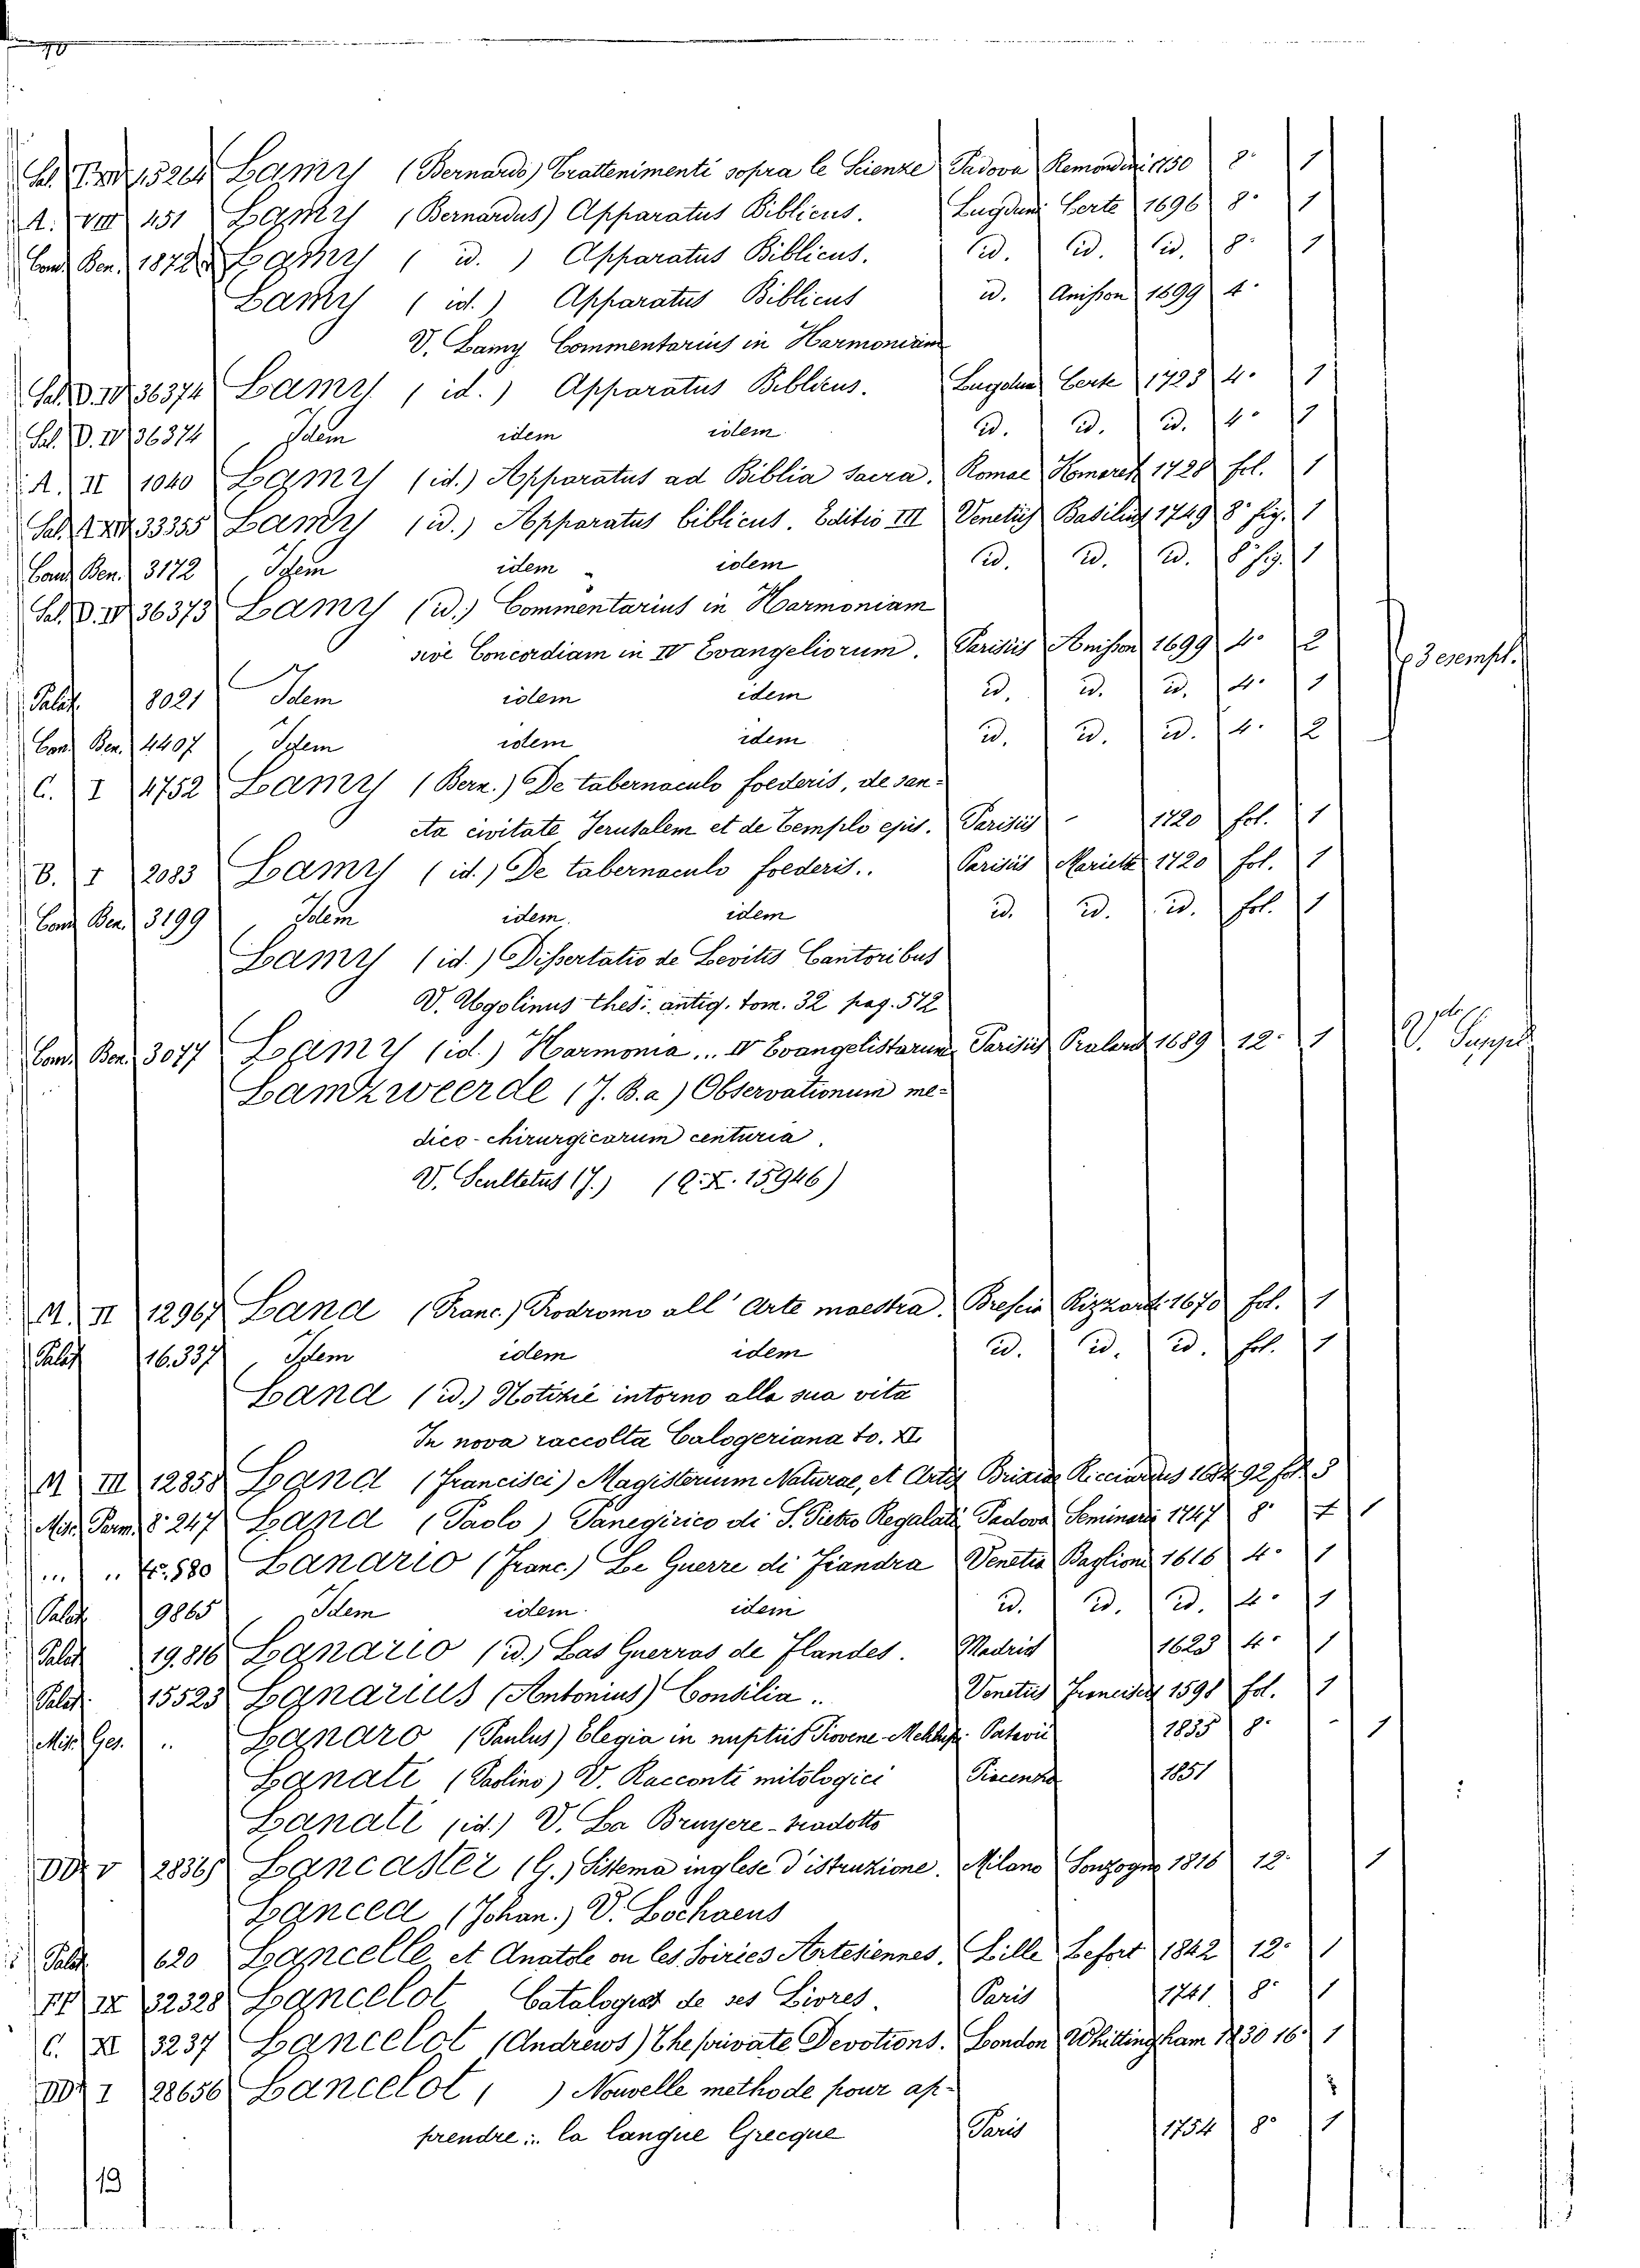 Lamy (Bernardo) Trattenimenti sopra le Scienze Padova Remondini 1750 8° 1
A. VIII 451 Lamy (Bernardus) Apparatus Biblicus. Lugduni Certe 1696 8° 1
Cons Ben. 1872 Lamy ( id. ) Apparatus Biblicus. id. id. id. 8° 1
Lamy ( id. ) Apparatus Biblicus id. Anisson 1699 4°
V. Lamy Commentarius in Harmoniam
Sal. D. IV 36374 Lamy ( id. ) Apparatus Biblicus. Lugduni Certe 1723 4° 1
Sal. D. IV 36374 Idem idem idem id. id. id. 4° 1
A. II 1040 Lamy (id.) Apparatus ad Biblia sacra. Romae Komarek 1728 fol. 1
33355 Lamy (id.) Apparatus biblicus. Editio III Venetiis Basilius 1749 8° fig. 1
Cons Ben. 3172 Idem idem idem id. id. id. 8° fig. 1
Sal. D. IV 36373 Lamy (id.) Commentarius in Harmoniam
sive Concordiam in IV Evangeliorum. Parisiis Anisson 1699 4° 2
3 esempl.
Palat. 8021 Idem idem idem id. id. id. 4° 1
Cons Ben. 4407 Idem idem idem id. id. id. 4° 2
C. I 4752 Lamy (Bern.) De tabernaculo foederis, de san-
cta civitate Jerusalem et de templo ejus. Parisiis - 1720 fol. 1
B. I 2083 Lamy (id.) De tabernaculo foederis.. Parisiis Mariette 1720 fol. 1
Cons Ben. 3199 Idem idem. idem id. id. id. fol. 1
Lamy (id.) Dissertatio de Levitis Cantoribus
V. Ugolinus thes: antiq. tom. 32 pag. 572
Cons Ben. 3077 Lamy (id.) Harmonia... IV Evangelistarum Parisiis Pralard 1689 12° 1
V. Suppl.
Lamzweerde (J. B. a) Observationum me-
dico-chirurgicarum centuria.
V. Scultetus (J.) (Q. X. 15946)
M. II 12967 Lana (Franc.) Prodromo all' Arte maestra. Brescia Rizzardi 1670 fol. 1
Palat 16.337 Idem idem idem id. id. id. fol. 1
Lana (id.) Notizie intorno alla sua vita
In nova raccolta Calogeriana to. XI
M III 12858 Lana (Francisci) Magisterium Naturae, et Artis Brixiae Ricciardus 1684.92 fol. 3
Misc. Parm. 8° 247 Lana (Paolo) Panegirico di S. Pietro Regalati Padova Seminario 1747 8° 1
... " 4°. 580 Lanario (Franc.) Le Guerre di Fiandra Venetia Baglioni 1616 4° 1
Palat 9865 Idem idem idem id. id. id. 4° 1
Palat 19.816 Lanario (id.) Las Guerras de Flandes. Madrid 1623 4° 1
Palat. 15523 Lanarius (Antonius) Consilia.. Venetiis Francisci 1598 fol. 1
Misc. Ges. .. Lanaro (Paulus) Elegia in nuptiis Piovene- Patavii 1835 8° - 1
Lanati (Paolino) V. Racconti mitologici Piacenza 1851
Lanati (id.) V. La Bruyere - tradotto
V 28365 Lancaster (G.) Sistema inglese d'istruzione. Milano Sonzogno 1816 12° 1
Lancea (Johan.) V. Lochaeus
Palat. 620 Lancelle et Anatole ou les Soiries Artesiennes. Lille Lefort 1842 12° 1
IX 32328 Lancelot Catalogus de ses Livres. Paris 1741 8° 1
C. XI 3237 Lancelot (Andrews) The private Devotions. London Whittingham 1830 16° 1
I 28656 Lancelot ( ) Nouvelle methode pour ap-
prendre :. la langue Grecque Paris 1754 8° 1
19